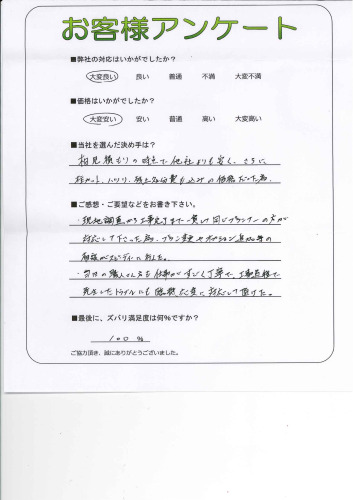 お客様アンケート
■弊社の対応はいかがでしたか?
大変良い 良い 普通 不満 大変不満
■価格はいかがでしたか?
大変安い 安い 普通 高い 大変高い
■当社を選んだ決め手は?
相見積もりの時点で他社よりも安く、さらに
残土処分費も込みの価格だった為。
■ご感想・ご要望などをお書き下さい。
・現地調査から工事完了まで一貫して同じプランナーの方が
対応して下さった為、プラン変更やオプション追加等の
相談がスムーズに行えた。
・当日の職人さん方も仕事がすごく丁寧で、工事過程で
発生したトラブルにも臨機応変に対応して頂けた。
■最後に、ズバリ満足度は何%ですか?
100%
ご協力頂き、誠にありがとうございました。